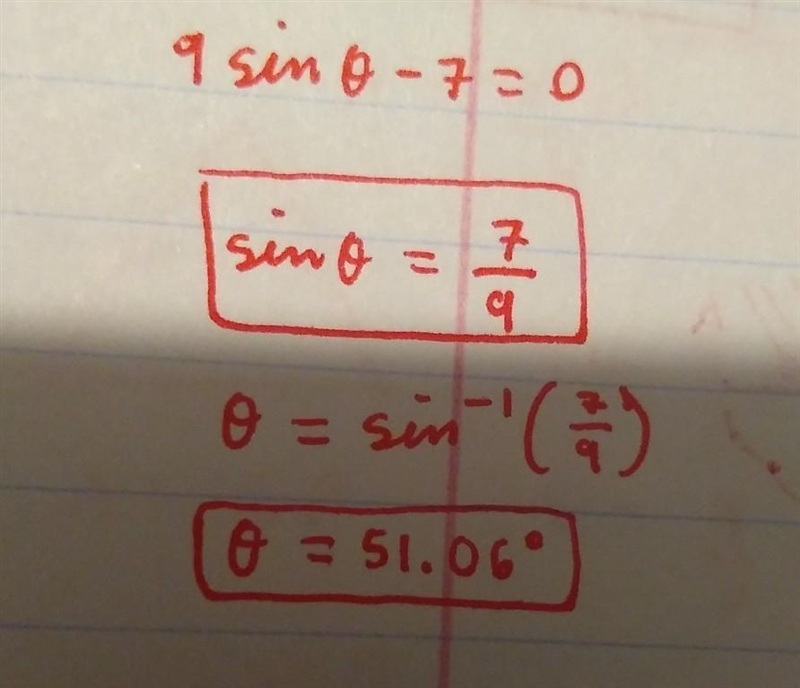 9 sin θ - 7 = 0
sin θ = 7/9
θ = sin⁻¹(7/9)
θ = 51.06°